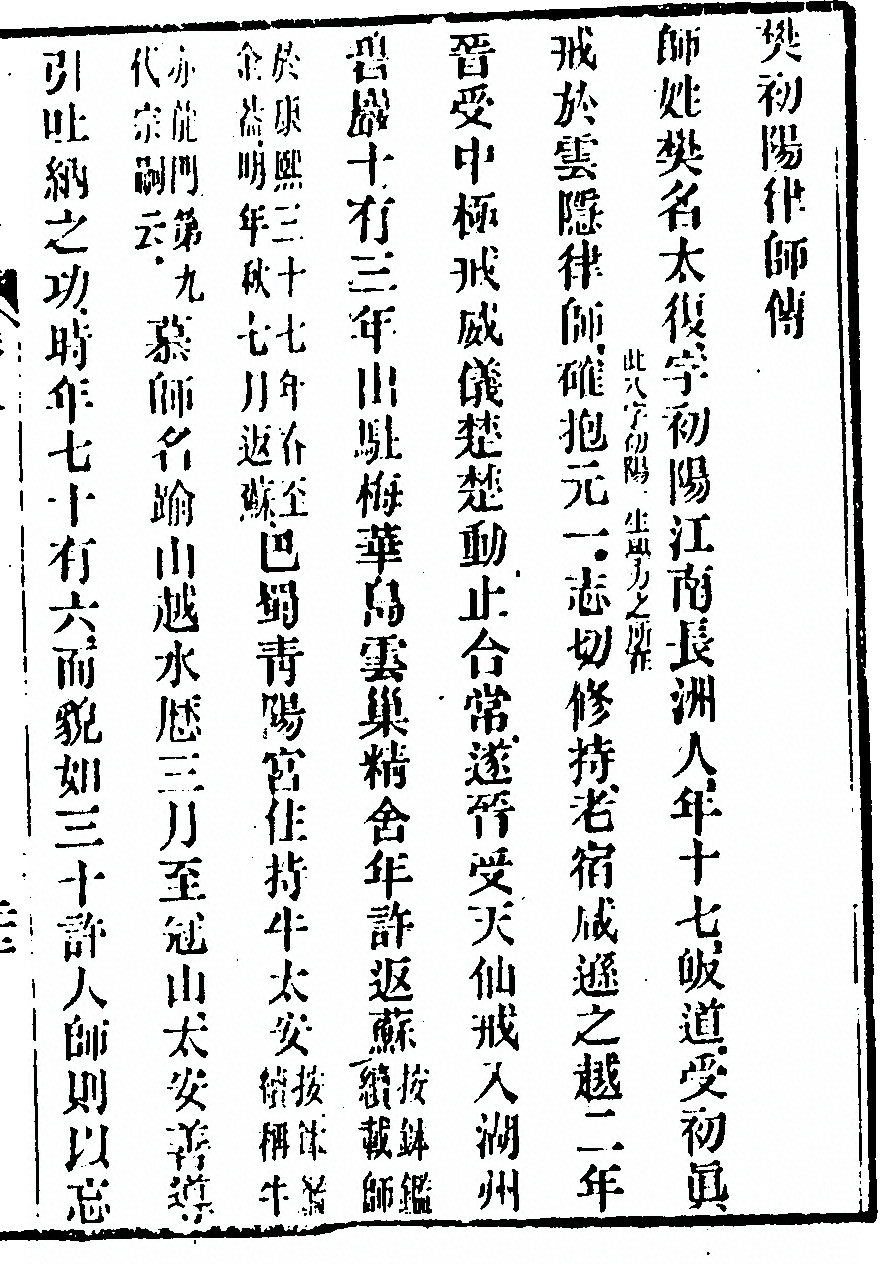 樊初陽律師傳
師姓樊名太復字初陽江南長洲人年十七皈道受初眞
此八字初陽一生得力之所在
戒於雲隱律師確抱元一志切修持老宿咸遜之越二年
晉受中極戒威儀楚楚動止合常遂晉受天仙戒入湖州
碧巖十有三年出駐梅華島雲巢精舍年許返蘇按鉢鑑續載師
於康熙三十七年春至金蓋明年秋七月返蘇巴蜀靑陽宮住持牛太安按鉢鑑續稱牛
亦龍門第九代宗嗣云慕師名踰山越水歷三月至冠山太安善導
引吐納之功時年七十有六而貌如三十許人師則以忘